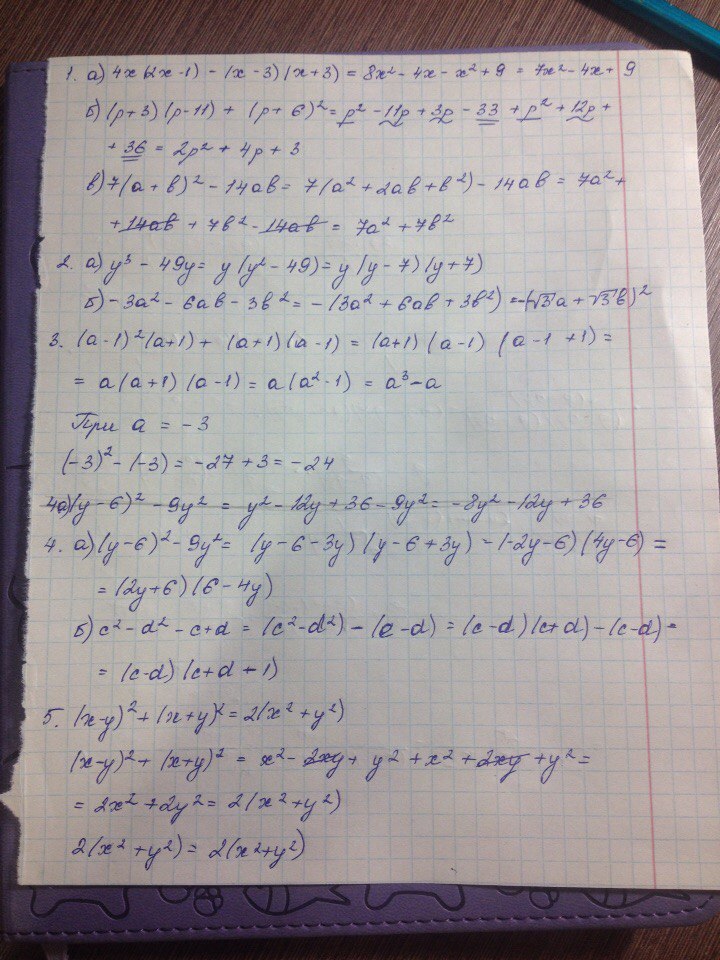 1. а) 4x(2x-1) - (x-3)(x+3) = 8x² - 4x - x² + 9 = 7x² - 4x + 9
б) (p+3)(p-11) + (p+6)² = p² - 11p + 3p - 33 + p² + 12p +
+ 36 = 2p² + 4p + 3
в) 7(a+b)² - 14ab = 7(a² + 2ab + b²) - 14ab = 7a² +
+ 14ab + 7b² - 14ab = 7a² + 7b²
2. а) y³ - 49y = y(y² - 49) = y(y-7)(y+7)
б) -3a² - 6ab - 3b² = -(3a² + 6ab + 3b²) = -(√3a + √3b)²
3. (a-1)²(a+1) + (a+1)(a-1) = (a+1)(a-1)(a-1+1) =
= a(a+1)(a-1) = a(a²-1) = a³ - a
При a = -3
(-3)² - (-3) = -27 + 3 = -24
4а) (y-6)² - 9y² = y² - 12y + 36 - 9y² = -8y² - 12y + 36
4. а) (y-6)² - 9y² = (y-6-3y)(y-6+3y) = (-2y-6)(4y-6) =
= (2y+6)(6-4y)
б) c² - d² - c + d = (c² - d²) - (c-d) = (c-d)(c+d) - (c-d) =
= (c-d)(c+d-1)
5. (x-y)² + (x+y)² = 2(x² + y²)
(x-y)² + (x+y)² = x² - 2xy + y² + x² + 2xy + y² =
= 2x² + 2y² = 2(x² + y²)
2(x² + y²) = 2(x² + y²)